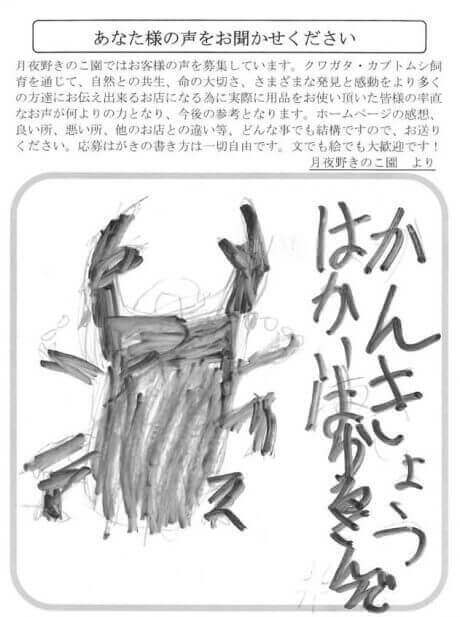 あなた様の声をお聞かせください
月夜野きのこ園ではお客様の声を募集しています。クワガタ・カブトムシ飼
育を通じて、自然との共生、命の大切さ、さまざまな発見と感動をより多く
の方達にお伝え出来るお店になる為に実際に用品をお使い頂いた皆様の率直
なお声が何よりの力となり、今後の参考となります。ホームページの感想、
良い所、悪い所、他のお店との違い等、どんな事でも結構ですので、お送り
ください。応募はがきの書き方は一切自由です。文でも絵でも大歓迎です！
月夜野きのこ園　より
かんきょう
はかい